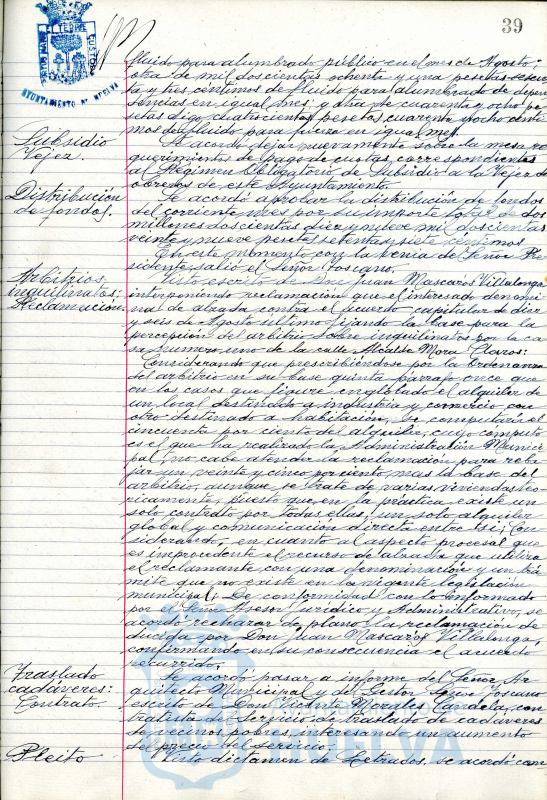 39
AYUNTAMIENTO DE HUELVA
fluido para alumbrado público en el mes de Agosto;
otra de mil doscientas ochenta y una pesetas sesen-
ta y tres céntimos de fluido para alumbrado de depen-
dencias en igual mes; y otra de cuarenta y ocho pe-
setas digo cuatrocientas pesetas cuarenta y ocho cénti-
mos de fluido para fuerza en igual mes.
Subsidio
Vejez.
Se acordó dejar nuevamente sobre la mesa re-
querimientos de pago de cuotas, correspondientes
al Régimen Obligatorio de Subsidio a la Vejez de
obreros de este Ayuntamiento.
Distribución
de fondos.
Se acordó aprobar la distribución de fondos
del corriente mes por su importe total de dos
millones doscientas diez y nueve mil doscientas
veinte y nueve pesetas setenta y siete céntimos
En este momento con la venia del Señor Pre-
sidente, salió el Señor Toscano.
Arbitrios
inquilinatos:
Reclamación.
Visto escrito de Don Juan Mascarós Villalonga,
interponiendo reclamación que el interesado denomi-
na de alzada contra el acuerdo capitular de diez
y seis de Agosto último fijando la base para la
percepción del arbitrio sobre inquilinatos por la ca-
sa número uno de la calle Alcalde Mora Claros:
Considerando que prescribiéndose por la Ordenanza
del arbitrio en su base quinta párrafo once que
en los casos que figure englobado el alquiler de
un local destinado a industria y comercio con
otro destinado a habitación, se computaría el
cincuenta por ciento del alquiler, cuyo cómputo
es el que ha realizado la Administración Munici-
pal, no cabe atender la reclamación para reba-
jar un veinte y cinco por ciento mas la base del
arbitrio, aunque se trate de varias viviendas teó-
ricamente, puesto que en la práctica existe un
solo contrato por todas ellas, un solo alquiler
global y comunicación directa entre sí; Con-
siderando, en cuanto al aspecto procesal que
es improcedente el recurso de alzada que utiliza
el reclamante con una denominación y un trá-
mite que no existe en la vigente legislación
municipal; De conformidad con lo informado
por el Señor Asesor Jurídico y Administrativo, se
acordó rechazar de plano la reclamación de-
ducida por Don Juan Mascarós Villalonga,
confirmando en su consecuencia el acuerdo
recurrido.
Traslado
cadáveres:
Contrato.
Se acordó pasar a informe del Señor Ar-
quitecto Municipal y del Gestor Señor Toscano
escrito de Don Vicente Morales Candela, con-
tratista del Servicio de traslado de cadáveres
de vecinos pobres, interesando un aumento
del precio del servicio.
Pleito
Visto dictamen de Letrados, se acordó com-
HUELVA